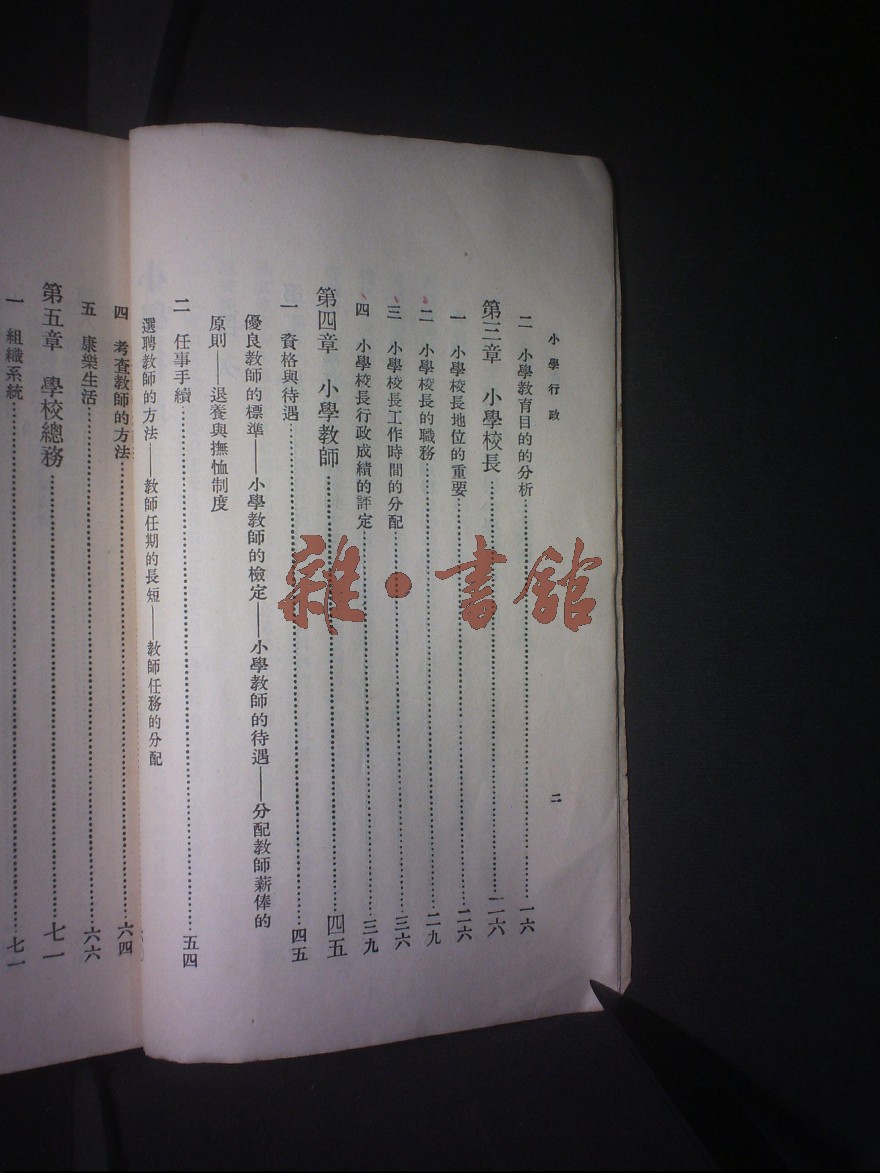 小學行政
二
二　小學教育目的的分析……一六
第三章　小學校長……二六
一　小學校長地位的重要……二六
二　小學校長的職務……二九
三　小學校長工作時間的分配……三六
四　小學校長行政成績的評定……三九
第四章　小學教師……四五
一　資格與待遇……四五
優良教師的標準——小學教師的檢定——小學教師的待遇——分配教師薪俸的
原則——退養與撫恤制度
二　任事手續……五四
選聘教師的方法——教師任期的長短——教師任務的分配
四　考查教師的方法……六四
五　康樂生活……六六
第五章　學校總務……七一
一　組織系統……七一
雜·書館